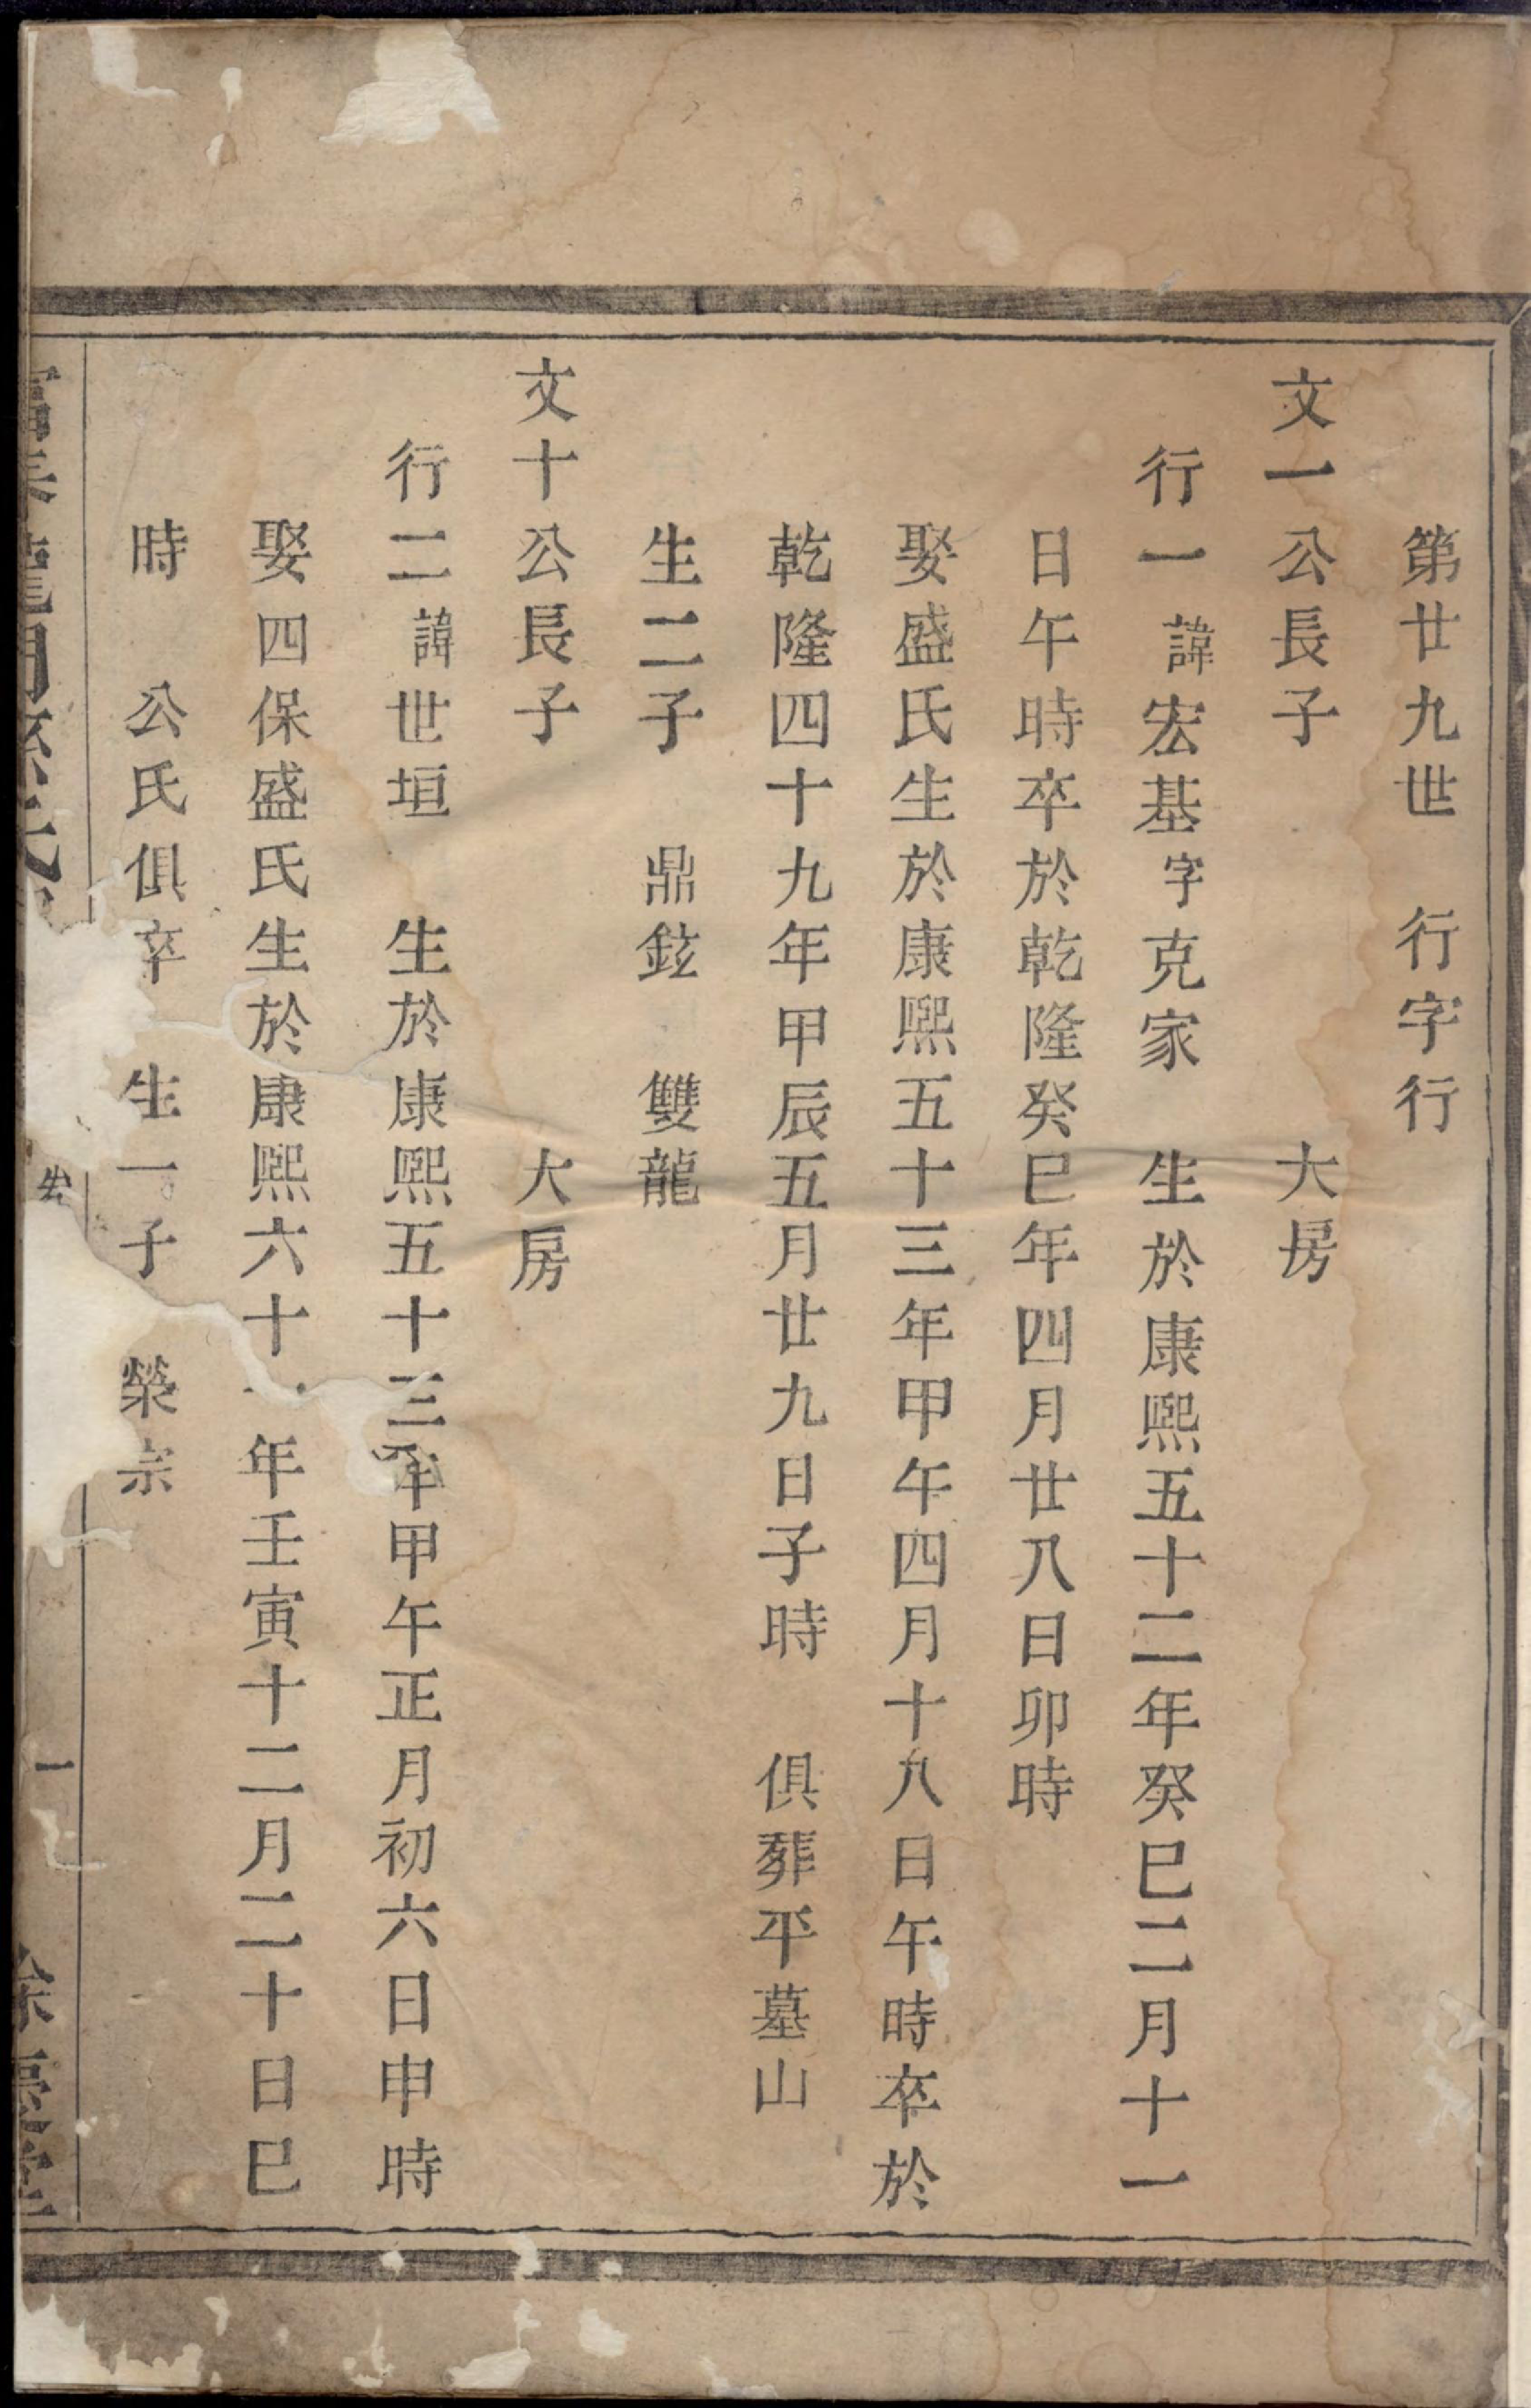 第廿九世　行字行
文一公長子　大房
行一諱宏基字克家　生於康熙五十二年癸巳二月十一
日午時卒於乾隆癸巳年四月廿八日卯時
娶盛氏生於康熙五十三年甲午四月十八日午時卒於
乾隆四十九年甲辰五月廿九日子時　俱葬平墓山
生二子　鼎鉉　雙龍
文十公長子　大房
行二諱世垣　生於康熙五十三年甲午正月初六日申時
娶四保盛氏生於康熙六十一年壬寅十二月二十日巳
時　公氏俱卒　生一子　榮宗
龍門
一